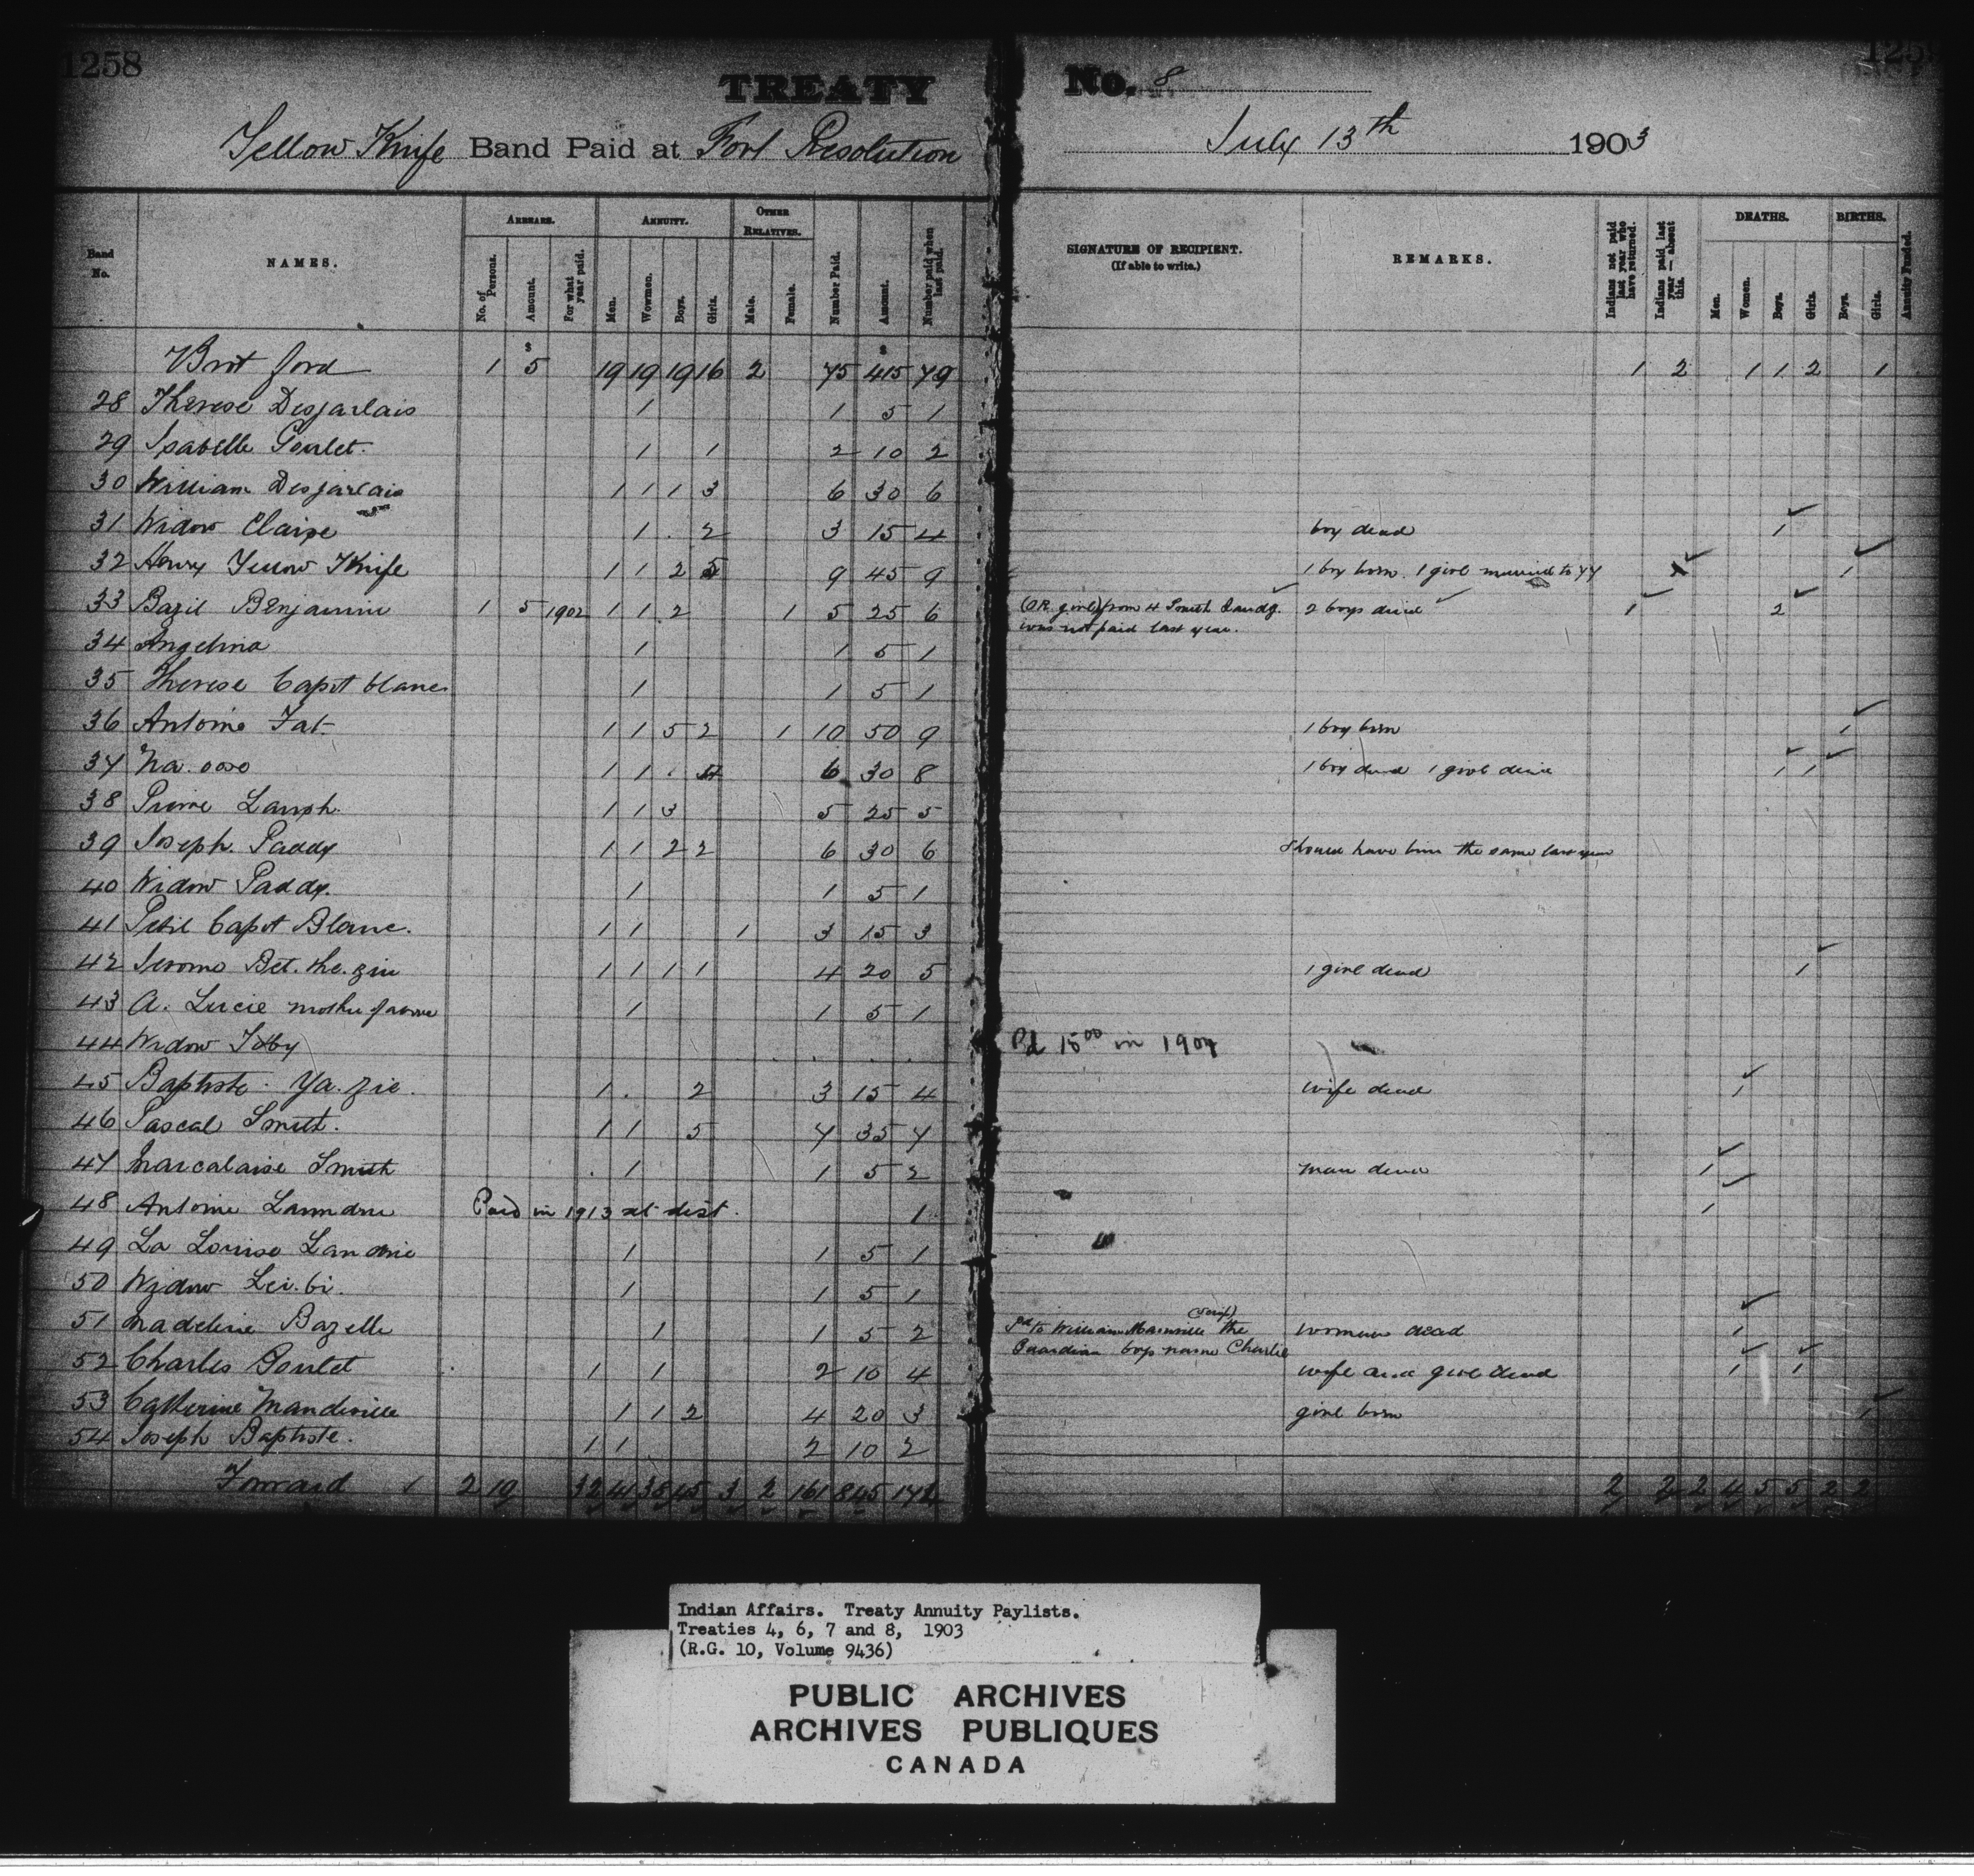 1258
TREATY No. 8
Yellow Knife Band Paid at Fort Resolution July 13th 1903
Band No. NAMES. ARREARS. No. of Persons. Amount. For what year paid. ANNUITY. Men. Wowmen. Boys. Girls. OTHER RELATIVES. Male. Female. Number Paid. Amount. Number paid when last paid. SIGNATURE OF RECIPIENT. (If able to write.) REMARKS. Indians not paid last year who have returned. Indians paid last year — absent this. DEATHS. Men. Women. Boys. Girls. BIRTHS. Boys. Girls. Annuity Funded.
Brot ford 1 $ 5 19 19 19 16 2 75 $ 415 79 1 2 1 1 2 1
28 Therese Desjarlais 1 1 5 1
29 Isabelle Goulet. 1 1 2 10 2
30 William Desjarlais 1 1 1 3 6 30 6
31 Widow Claire 1 . 2 3 15 4 boy dead 1
32 Henry Yellow Knife 1 1 2 5 9 45 9 1 boy born. 1 girl married to 77 1
33 Bazil Benjamin 1 5 1902 1 1 2 1 5 25 6 (O.R. girl) from 4 Smith Landg. 2 boys died 1 2
was not paid last year.
34 Angelina 1 1 5 1
35 Therese Capot blanc 1 1 5 1
36 Antoine Fat 1 1 5 2 1 10 50 9 1 boy born 1
37 Na. 1 1 . 4 6 30 8 1 boy dead 1 girl died 1 1
38 Pierre Lamph. 1 1 3 5 25 5
39 Joseph. Paddy 1 1 2 2 6 30 6 Should have been the same last year
40 Widow Paddy. 1 1 5 1
41 Petit Capot Blanc. 1 1 1 3 15 3
42 Jerome Bet. the. zin 1 1 1 1 4 20 5 1 girl dead 1
43 A. Lucie mother of above 1 1 5 1
44 Widow . . . Pd 15 00 in 1904
45 Baptiste. Ya. zie. 1 . 2 3 15 4 wife dead 1
46 Pascal Smith. 1 1 5 7 35 7
47 Marcalaise Smith . 1 1 5 2 man dead 1
48 Antoine Paid in 1913 at dist. 1 1
49 La Louise Landrie 1 1 5 1
50 Widow Lei. bi. 1 1 5 1
51 Madeline Bazelle 1 1 5 2 Pd to William Manville (Scrip) the woman dead 1
Guardian boys name Charlie
52 Charles Goulet 1 1 2 10 4 wife and girl dead 1 1
53 Catherine Mandeville 1 1 2 4 20 3 girl born 1
54 Joseph Baptiste. 1 1 2 10 2
Forward 1 2 10 32 41 35 45 3 2 161 845 172 2 2 2 4 5 5 2 2
Indian Affairs. Treaty Annuity Paylists.
Treaties 4, 6, 7 and 8, 1903
(R.G. 10, Volume 9436)
PUBLIC ARCHIVES
ARCHIVES PUBLIQUES
CANADA